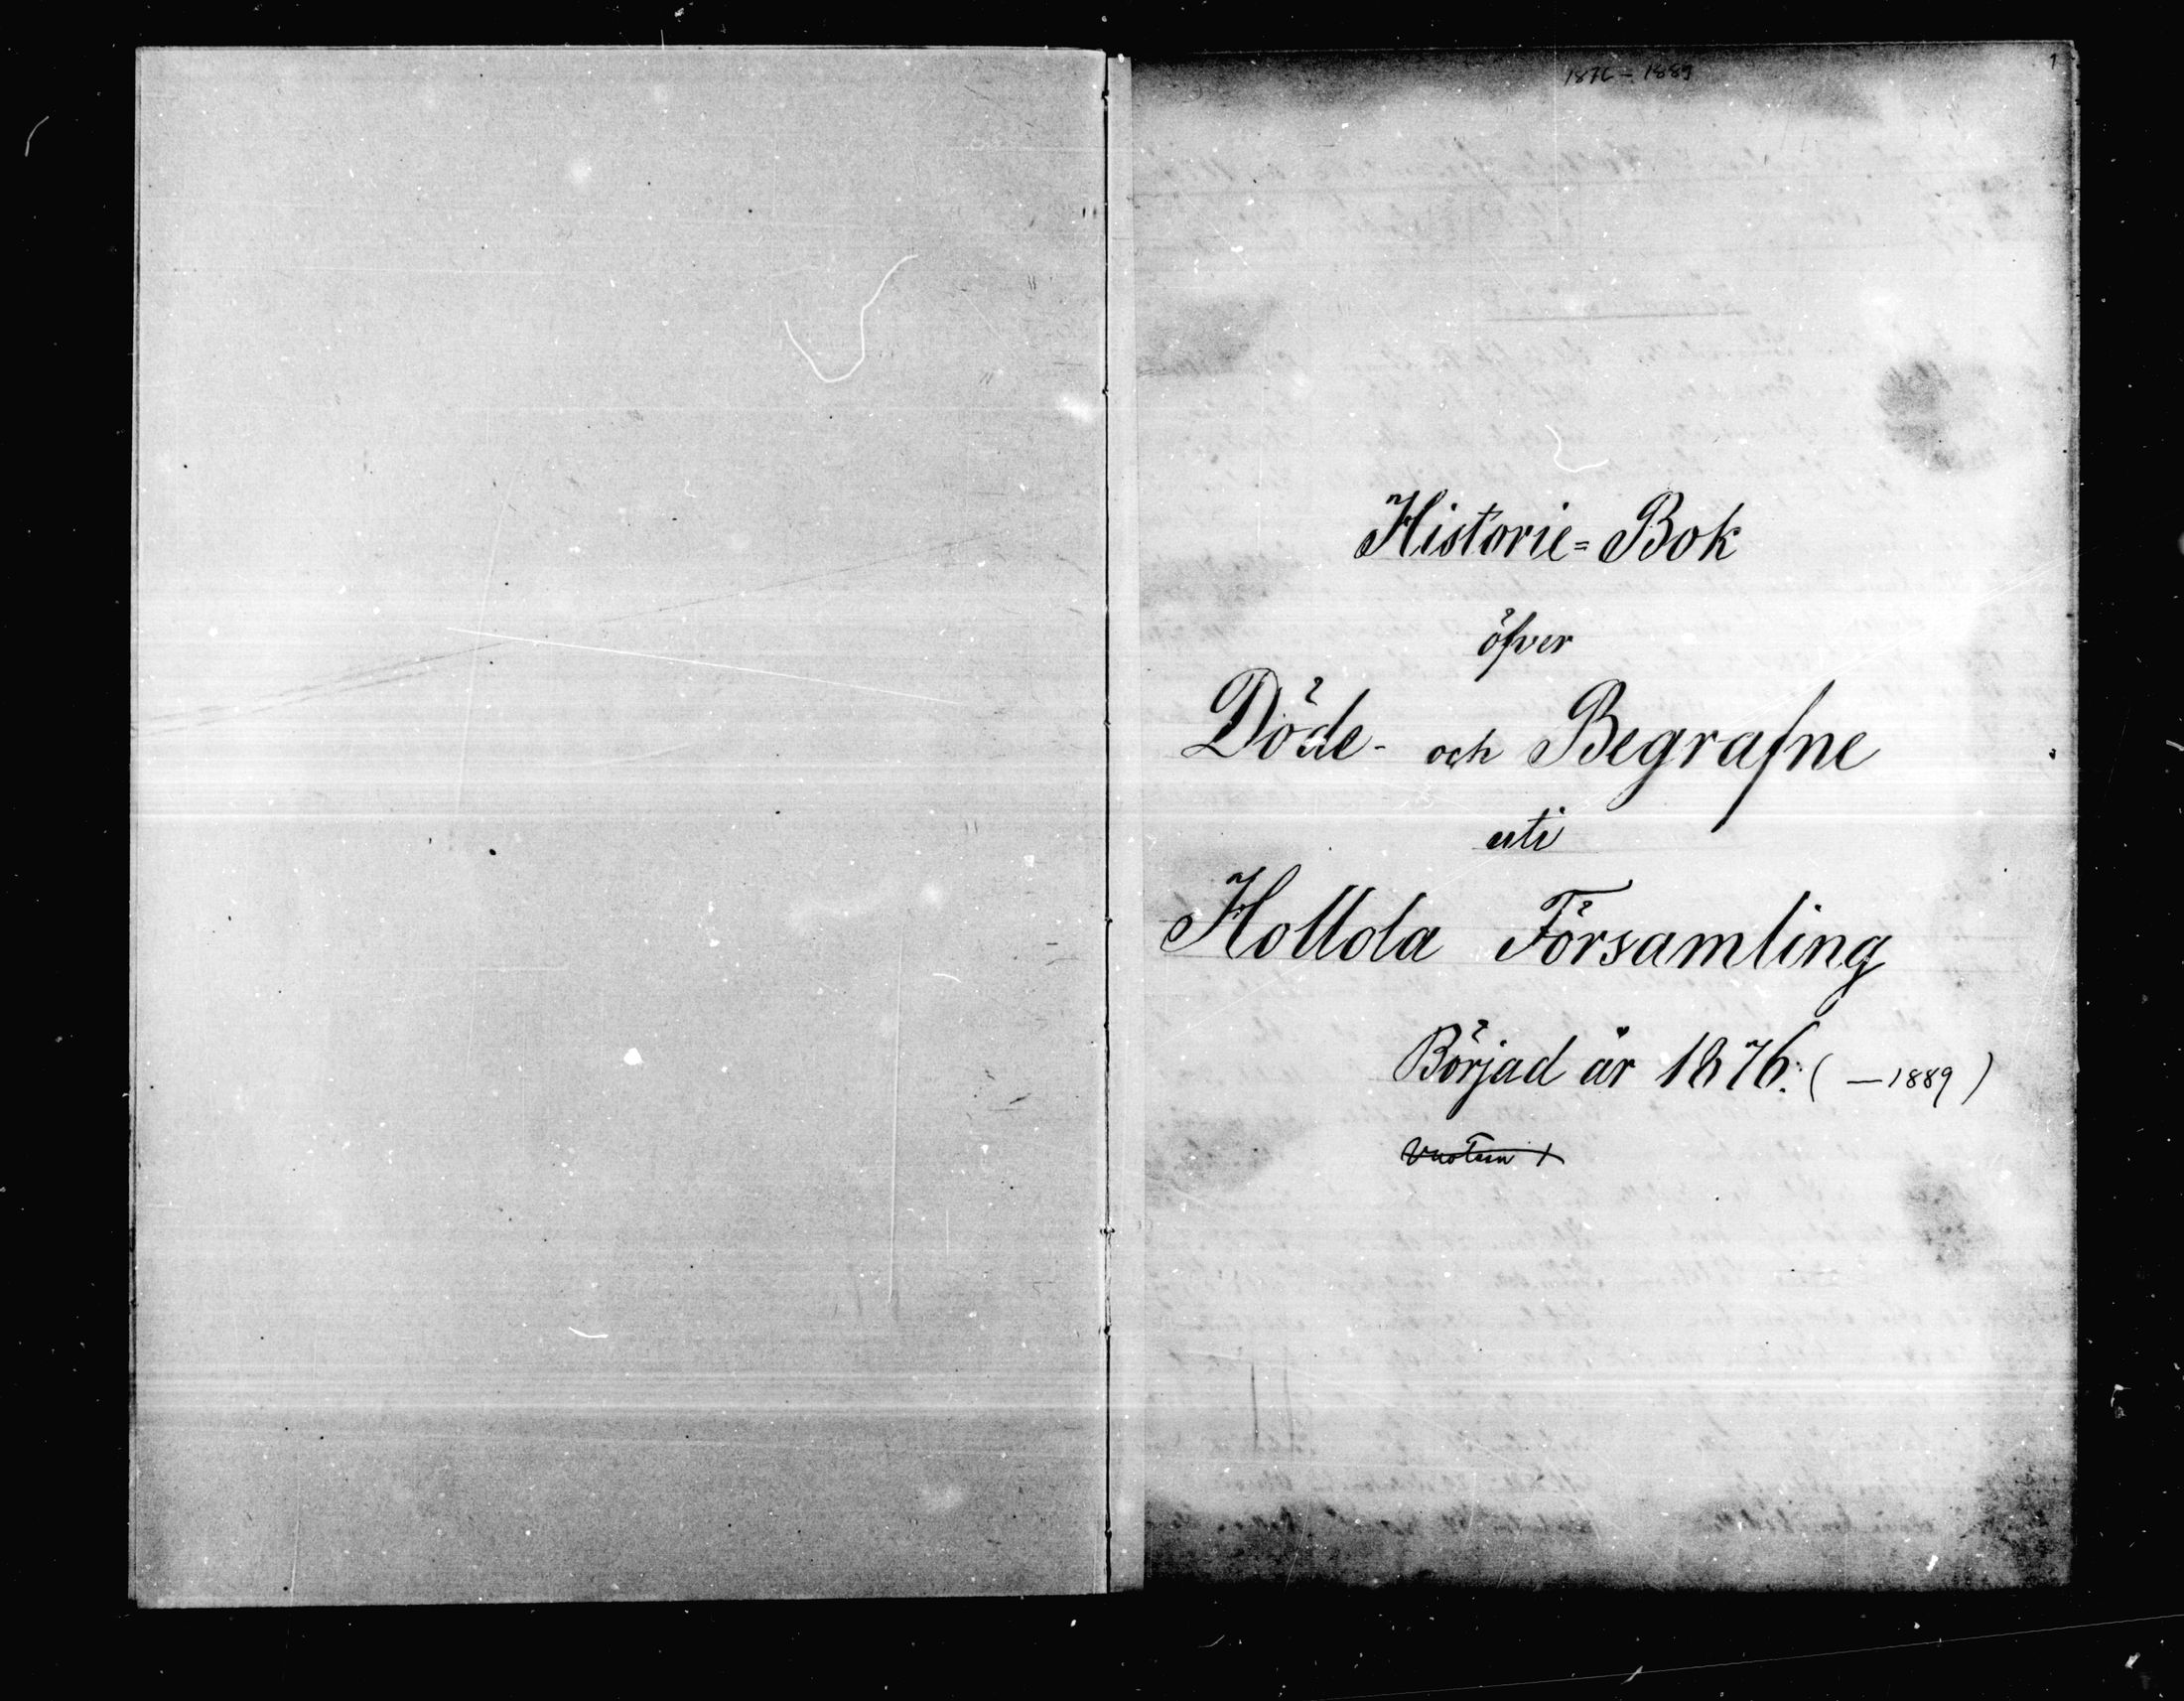 1876 – 1889
1
Historie=Bok
öfver
Döde- och Begrafne
uti
Hollola Församling
Börjad år 1876. ( —1889 )